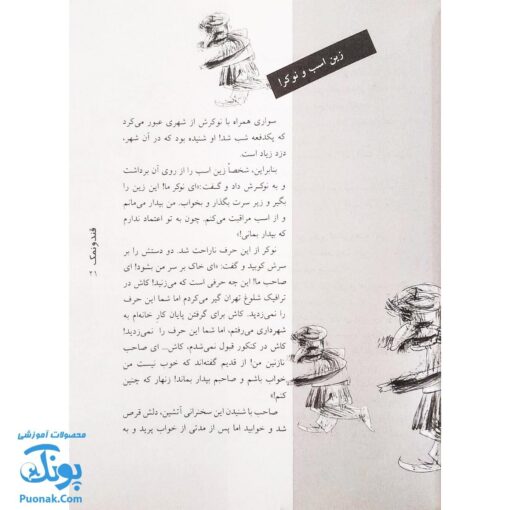 زین اسب و نوکرا
سواری همراه با نوکرش از شهری عبور می‌کرد
که یکدفعه شب شد! او شنیده بود که در آن شهر،
دزد زیاد است.
بنابراین، شخصاً زین اسب را از روی آن برداشت
و به نوکرش داد و گفت: «ای نوکر ما! این زین را
بگیر و زیر سرت بگذار و بخواب. من بیدار می‌مانم
و از اسب مراقبت می‌کنم. چون به تو اعتماد ندارم
که بیدار بمانی!»
نوکر از این حرف ناراحت شد. دو دستش را بر
سرش کوبید و گفت: «ای خاک بر سر من بشود! ای
صاحب ما! این چه حرفی است که می‌زنید! کاش در
ترافیک شلوغ تهران گیر می‌کردم اما شما این حرف
را نمی‌زدید. کاش برای گرفتن پایان کار خانه‌ام به
شهرداری می‌رفتم، اما شما این حرف را نمی‌زدید!
کاش در کنکور قبول نمی‌شدم، کاش... ای صاحب
نازنین من! از قدیم گفته‌اند که خوب نیست من
خواب باشم و صاحبم بیدار بماند! زنهار که چنین
کنم!»
صاحب با شنیدن این سخنرانی آتشین، دلش قرص
شد و خوابید اما پس از مدتی از خواب پرید و به
قندونمک
محصولات آموزشی
پونک
Puonak.Com